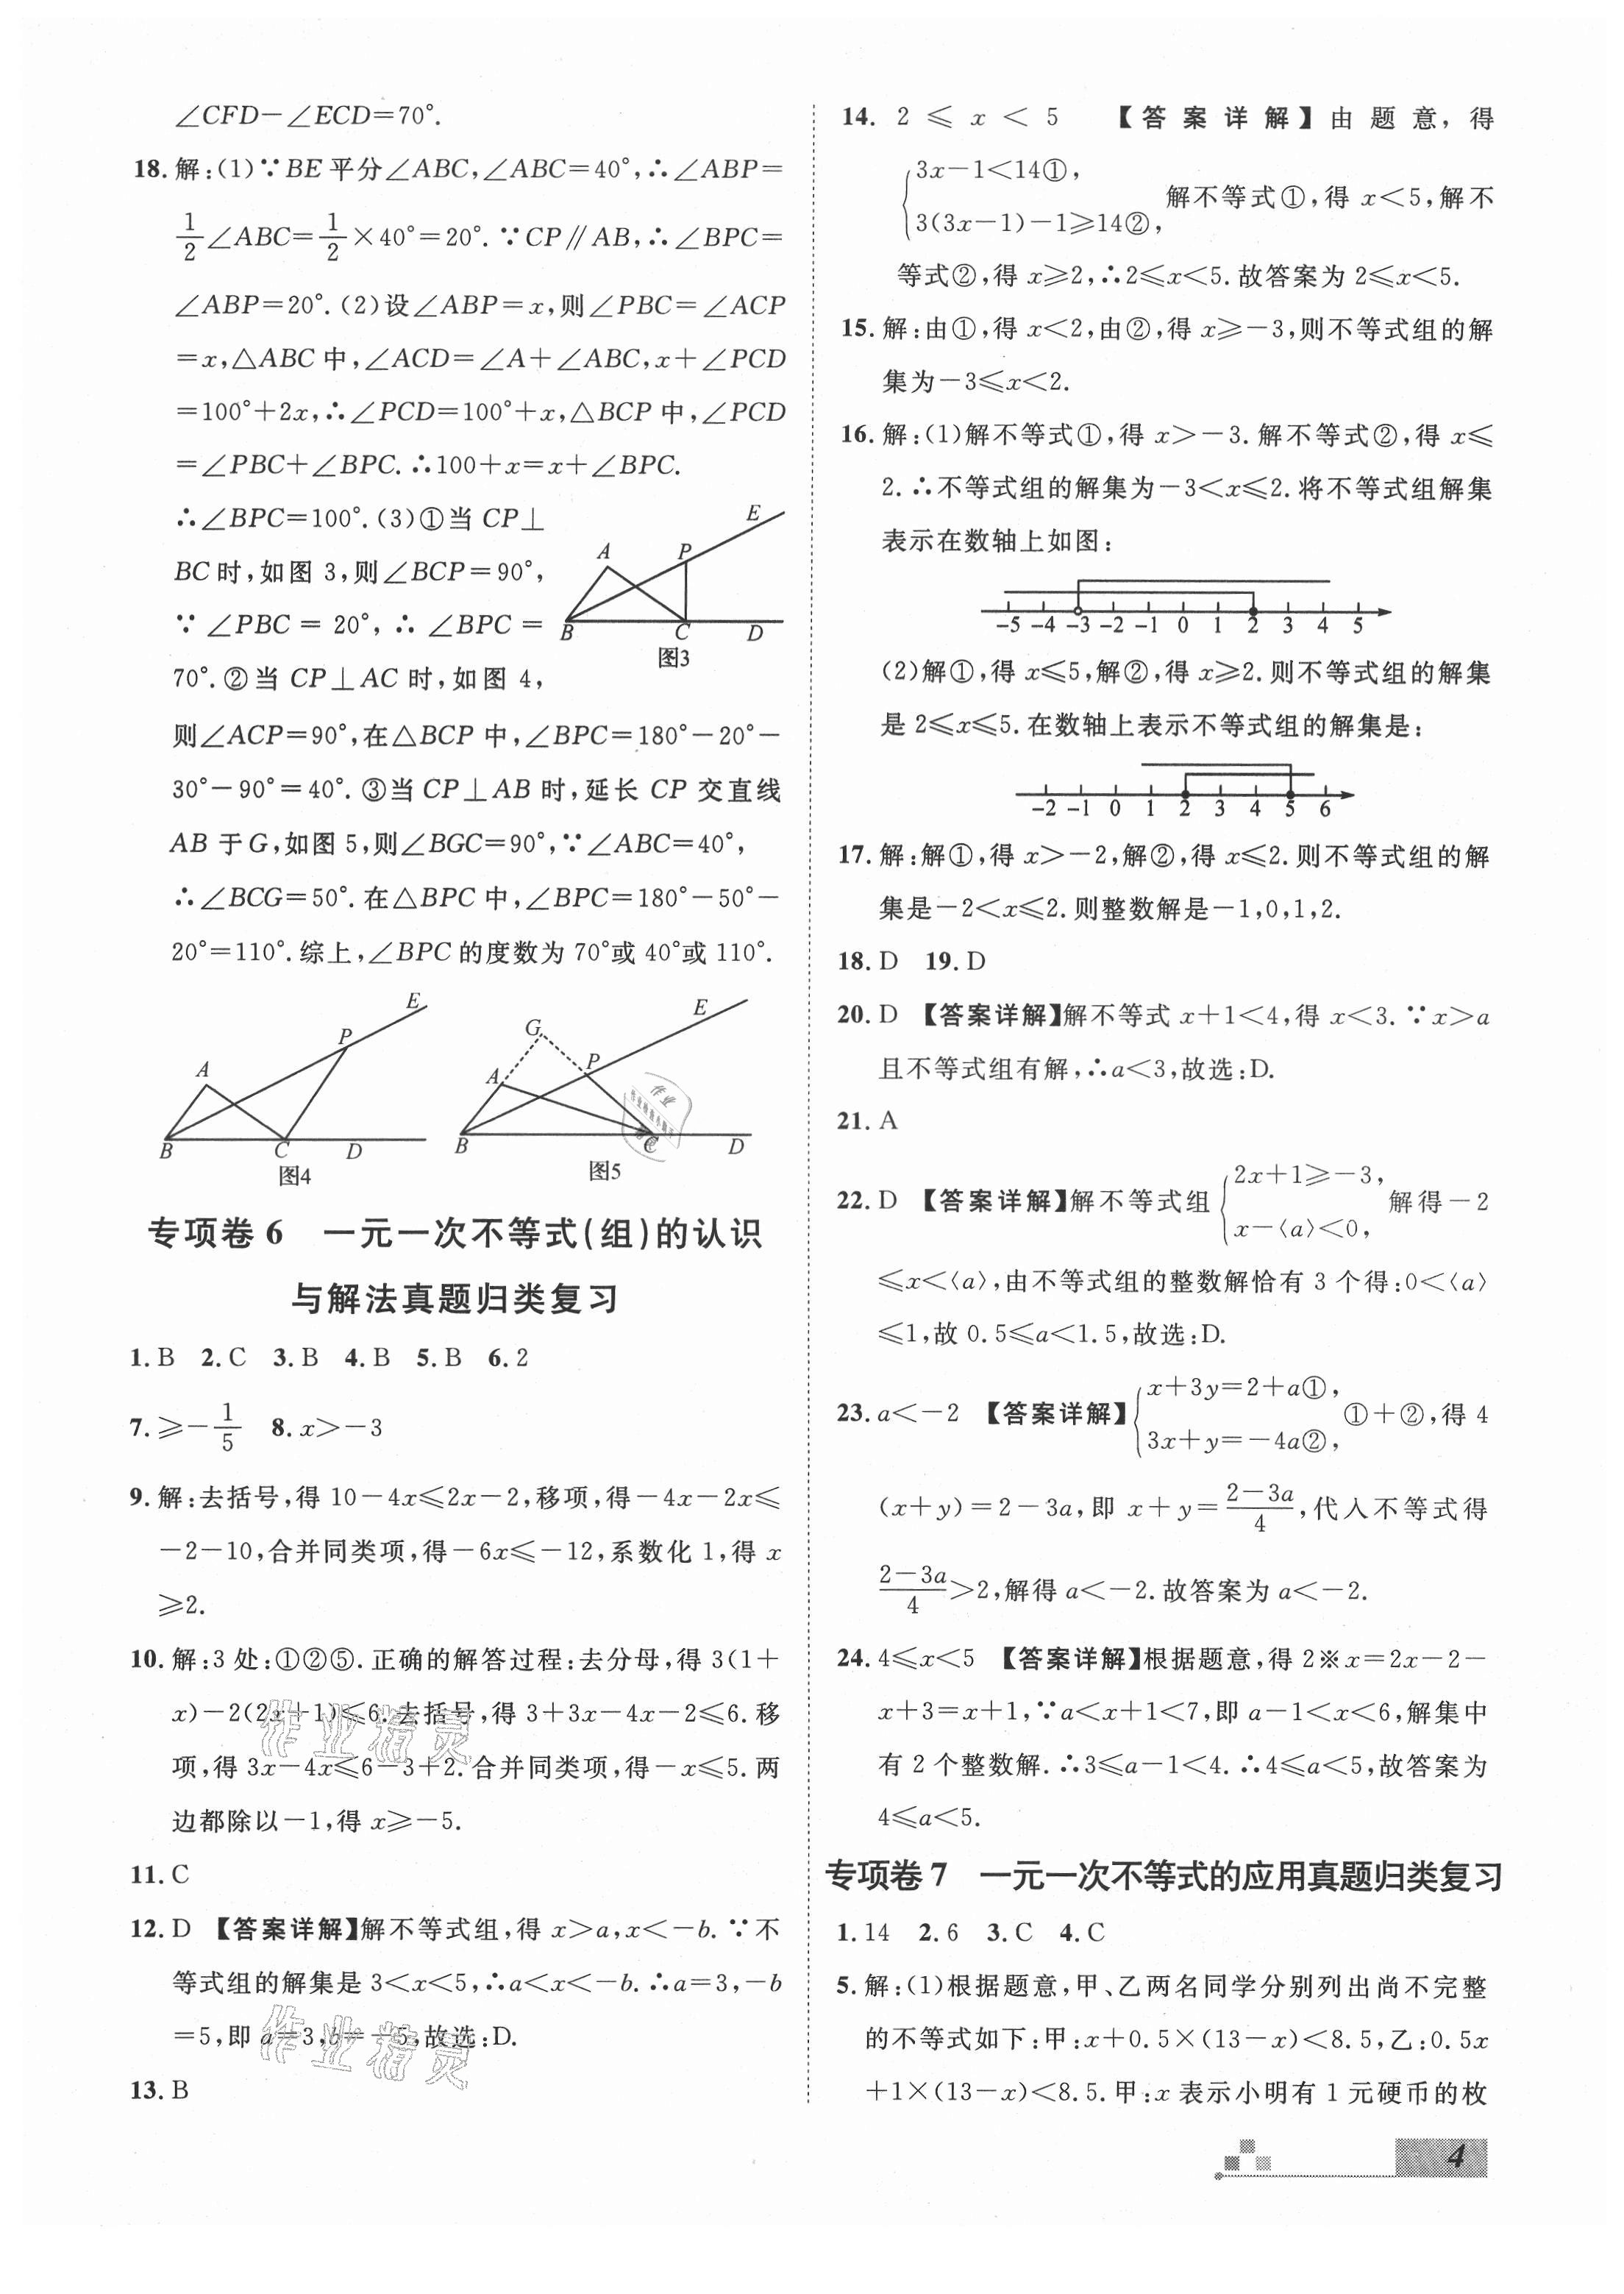 ∠CFD－∠ECD＝70°.
18. 解:(1)∵BE 平分∠ABC,∠ABC＝40°,∴∠ABP＝
1/2∠ABC＝1/2×40°＝20°.∵CP∥AB,∴∠BPC＝
∠ABP＝20°.(2)设∠ABP＝x,则∠PBC＝∠ACP
＝x,△ABC 中,∠ACD＝∠A＋∠ABC,x＋∠PCD
＝100°＋2x,∴∠PCD＝100°＋x,△BCP 中,∠PCD
＝∠PBC＋∠BPC.∴100＋x＝x＋∠BPC.
∴∠BPC＝100°.(3)①当 CP⊥
BC 时,如图 3,则∠BCP＝90°,
∵∠PBC＝20°,∴∠BPC＝
70°.②当 CP⊥AC 时,如图 4,
A P E B C D
图3
则∠ACP＝90°,在△BCP 中,∠BPC＝180°－20°－
30°－90°＝40°.③当 CP⊥AB 时,延长 CP 交直线
AB 于 G,如图 5,则∠BGC＝90°,∵∠ABC＝40°,
∴∠BCG＝50°.在△BPC 中,∠BPC＝180°－50°－
20°＝110°.综上,∠BPC 的度数为 70°或 40°或 110°.
A P E B C D
图4
G A P E B C D
图5
专项卷 6 一元一次不等式(组)的认识
与解法真题归类复习
1. B 2. C 3. B 4. B 5. B 6. 2
7. ≥－1/5 8. x＞－3
9. 解:去括号,得 10－4x≤2x－2,移项,得－4x－2x≤
－2－10,合并同类项,得－6x≤－12,系数化 1,得 x
≥2.
10. 解:3 处:①②⑤.正确的解答过程:去分母,得 3(1＋
x)－2(2x＋1)≤6.去括号,得 3＋3x－4x－2≤6.移
项,得 3x－4x≤6－3＋2.合并同类项,得－x≤5.两
边都除以－1,得 x≥－5.
11. C
12. D 【答案详解】解不等式组,得 x＞a,x＜－b.∵不
等式组的解集是 3＜x＜5,∴a＜x＜－b.∴a＝3,－b
＝5,即 a＝3,b＝－5,故选:D.
13. B
14. 2≤x＜5 【答案详解】由题意,得
{3x－1＜14①,
3(3x－1)－1≥14②, 解不等式①,得 x＜5,解不
等式②,得 x≥2,∴2≤x＜5.故答案为 2≤x＜5.
15. 解:由①,得 x＜2,由②,得 x≥－3,则不等式组的解
集为－3≤x＜2.
16. 解:(1)解不等式①,得 x＞－3.解不等式②,得 x≤
2.∴不等式组的解集为－3＜x≤2.将不等式组解集
表示在数轴上如图:
-5 -4 -3 -2 -1 0 1 2 3 4 5
(2)解①,得 x≤5,解②,得 x≥2.则不等式组的解集
是 2≤x≤5.在数轴上表示不等式组的解集是:
-2 -1 0 1 2 3 4 5 6
17. 解:解①,得 x＞－2,解②,得 x≤2.则不等式组的解
集是－2＜x≤2.则整数解是－1,0,1,2.
18. D 19. D
20. D 【答案详解】解不等式 x＋1＜4,得 x＜3.∵x＞a
且不等式组有解,∴a＜3,故选:D.
21. A
22. D 【答案详解】解不等式组{2x＋1≥－3,
x－⟨a⟩＜0, 解得－2
≤x＜⟨a⟩,由不等式组的整数解恰有 3 个得:0＜⟨a⟩
≤1,故 0.5≤a＜1.5,故选:D.
23. a＜－2 【答案详解】{x＋3y＝2＋a①,
3x＋y＝－4a②, ①＋②,得 4
(x＋y)＝2－3a,即 x＋y＝(2－3a)/4,代入不等式得
(2－3a)/4＞2,解得 a＜－2.故答案为 a＜－2.
24. 4≤x＜5 【答案详解】根据题意,得 2※x＝2x－2－
x＋3＝x＋1,∵a＜x＋1＜7,即 a－1＜x＜6,解集中
有 2 个整数解.∴3≤a－1＜4.∴4≤a＜5,故答案为
4≤a＜5.
专项卷 7 一元一次不等式的应用真题归类复习
1. 14 2. 6 3. C 4. C
5. 解:(1)根据题意,甲、乙两名同学分别列出尚不完整
的不等式如下:甲:x＋0.5×(13－x)＜8.5,乙:0.5x
＋1×(13－x)＜8.5.甲:x 表示小明有 1 元硬币的枚
4
作业精灵
作业精灵